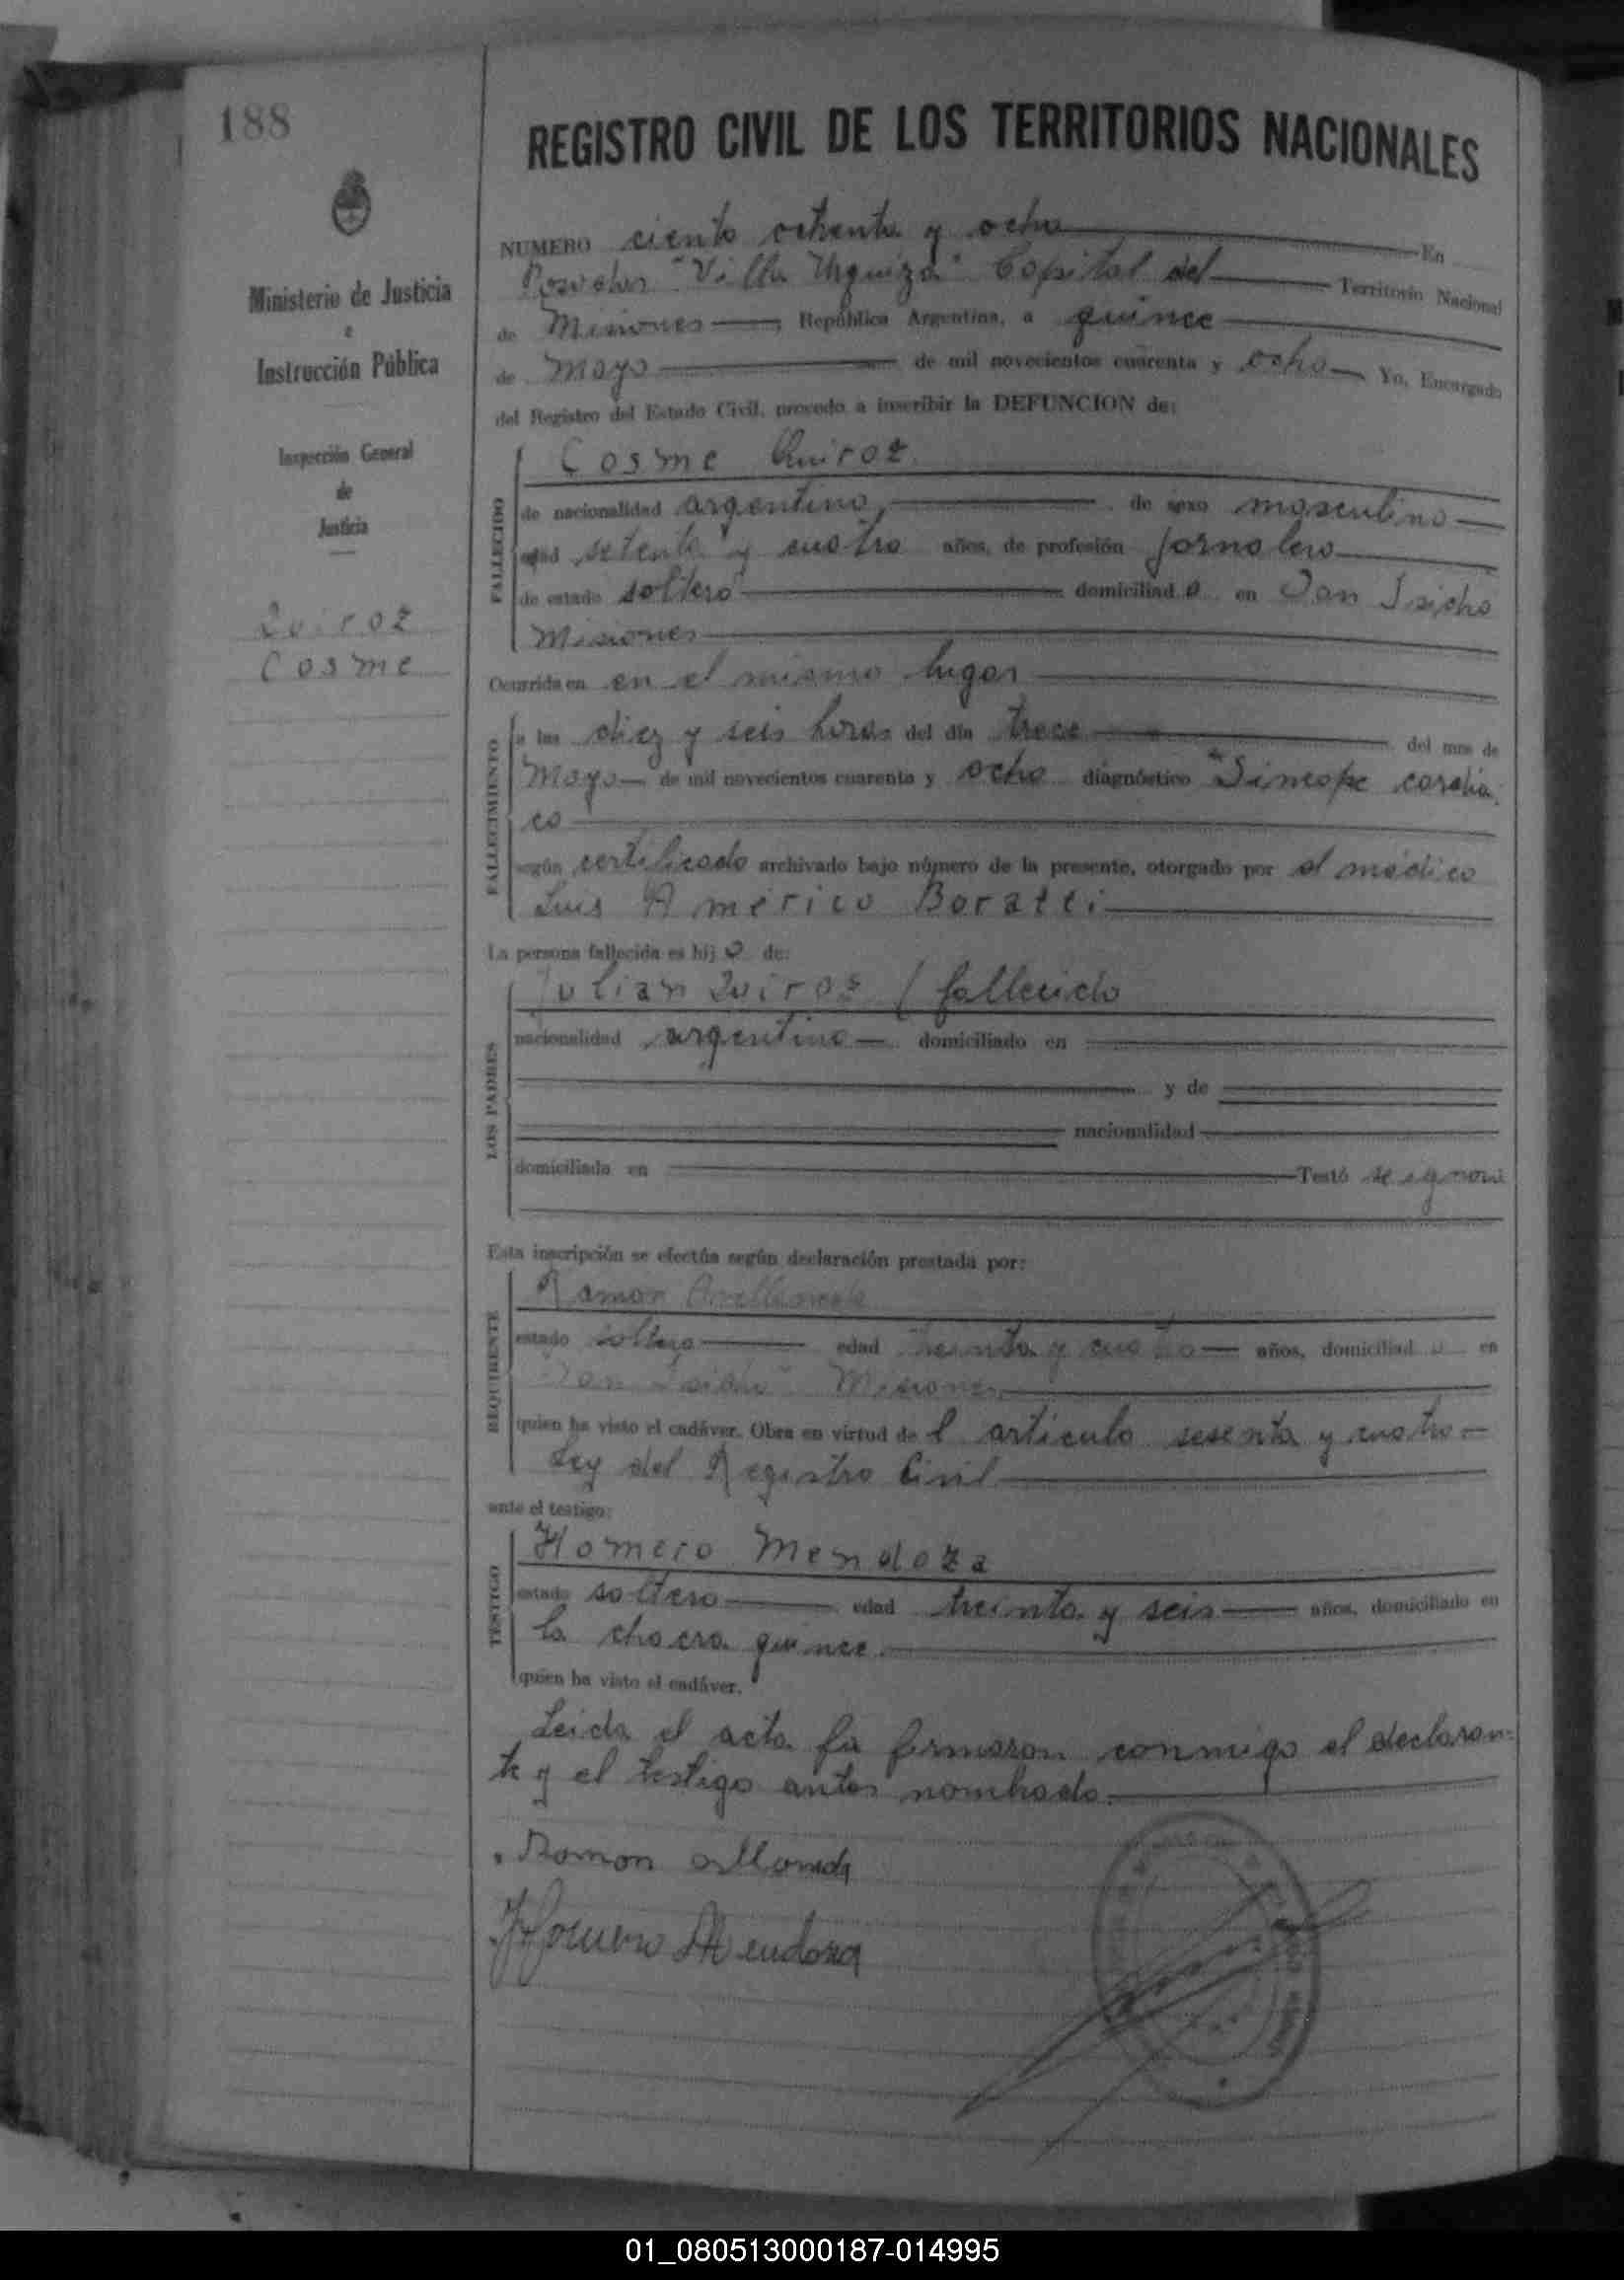 188
Ministerio de Justicia
e
Instrucción Pública
Inspección General
de
Justicia
Quiroz
Cosme
REGISTRO CIVIL DE LOS TERRITORIOS NACIONALES
NUMERO ciento ochenta y ocho En
"Villa Urquiza" Capital del Territorio Nacional
de Misiones República Argentina, a quince
de Mayo de mil novecientos cuarenta y ocho Yo, Encargado
del Registro del Estado Civil, procedo a inscribir la DEFUNCION de:
FALLECIDO
Cosme Quiroz
de nacionalidad argentino, de sexo masculino
edad setenta y cuatro años, de profesión jornalero
de estado soltero domiciliado en Don Isicho
Misiones
Ocurrida en en el mismo lugar
FALLECIMIENTO
a las diez y seis horas del día trece del mes de
Mayo de mil novecientos cuarenta y ocho diagnóstico "Sincope cardia
co
según certificado archivado bajo número de la presente, otorgado por el médico
Luis Américo Boratti
La persona fallecida es hijo de:
LOS PADRES
Julian Quiroz (fallecido
nacionalidad argentino domiciliado en
y de
nacionalidad
domiciliada en Testó se ignora
Esta inscripción se efectúa según declaración prestada por:
REQUIRENTE
Ramon
estado soltero edad treinta y cuatro años, domiciliado en
"Don Isicho" Misiones
quien ha visto el cadáver. Obra en virtud del articulo sesenta y cuatro
Ley del Registro Civil
ante el testigo:
TESTIGO
Homero Mendoza
estado soltero edad treinta y seis años, domiciliado en
la chacra quince
quien ha visto el cadáver.
Leida el acta la firmaron conmigo el declaran-
te y el testigo antes nombrado
Ramon
Homero Mendoza
01_080513000187-014995